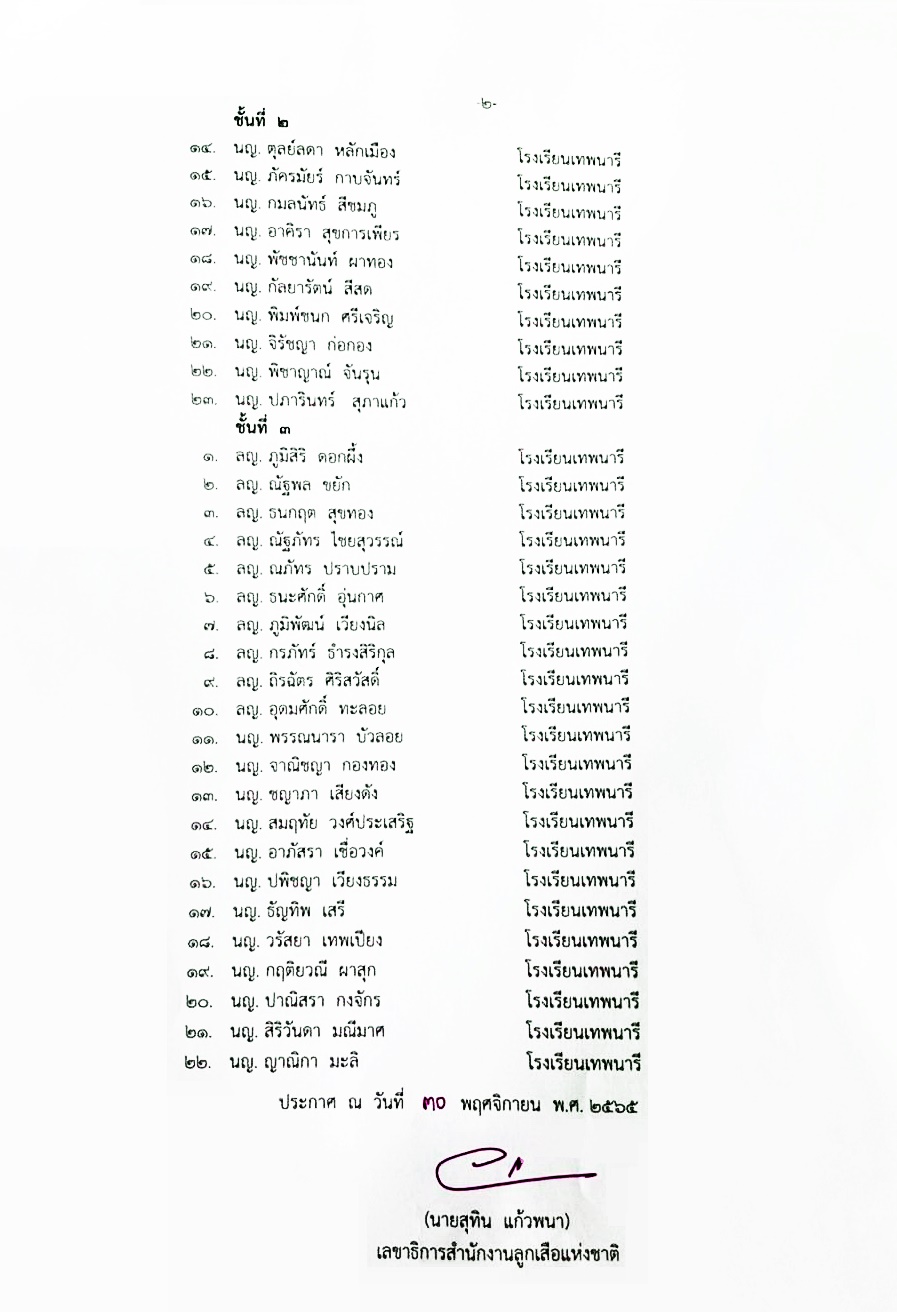 -๒-
ชั้นที่ ๒
๑๔. นญ. ตุลย์ลดา หลักเมือง โรงเรียนเทพนารี
๑๕. นญ. ภัครมัยร์ กาบจันทร์ โรงเรียนเทพนารี
๑๖. นญ. กมลนัทธ์ สีชมภู โรงเรียนเทพนารี
๑๗. นญ. อาคิรา สุขการเพียร โรงเรียนเทพนารี
๑๘. นญ. พัชชานันท์ ผาทอง โรงเรียนเทพนารี
๑๙. นญ. กัลยารัตน์ สีสด โรงเรียนเทพนารี
๒๐. นญ. พิมพ์ชนก ศรีเจริญ โรงเรียนเทพนารี
๒๑. นญ. จิรัชญา ก่อกอง โรงเรียนเทพนารี
๒๒. นญ. พิชาญาณ์ จันรุน โรงเรียนเทพนารี
๒๓. นญ. ปภารินทร์ สุภาแก้ว โรงเรียนเทพนารี
ชั้นที่ ๓
๑. ลญ. ภูมิสิริ ดอกผึ้ง โรงเรียนเทพนารี
๒. ลญ. ณัฐพล ขยัก โรงเรียนเทพนารี
๓. ลญ. ธนกฤต สุขทอง โรงเรียนเทพนารี
๔. ลญ. ณัฐภัทร ไชยสุวรรณ์ โรงเรียนเทพนารี
๕. ลญ. ณภัทร ปราบปราม โรงเรียนเทพนารี
๖. ลญ. ธนะศักดิ์ อุ่นกาศ โรงเรียนเทพนารี
๗. ลญ. ภูมิพัฒน์ เวียงนิล โรงเรียนเทพนารี
๘. ลญ. กรภัทร์ ธำรงสิริกุล โรงเรียนเทพนารี
๙. ลญ. ถิรฉัตร ศิริสวัสดิ์ โรงเรียนเทพนารี
๑๐. ลญ. อุดมศักดิ์ ทะลอย โรงเรียนเทพนารี
๑๑. นญ. พรรณนารา บัวลอย โรงเรียนเทพนารี
๑๒. นญ. จาณิชญา กองทอง โรงเรียนเทพนารี
๑๓. นญ. ชญาภา เสียงดัง โรงเรียนเทพนารี
๑๔. นญ. สมฤทัย วงศ์ประเสริฐ โรงเรียนเทพนารี
๑๕. นญ. อาภัสรา เชื่อวงค์ โรงเรียนเทพนารี
๑๖. นญ. ปพิชญา เวียงธรรม โรงเรียนเทพนารี
๑๗. นญ. ธัญทิพ เสรี โรงเรียนเทพนารี
๑๘. นญ. วรัสยา เทพเปียง โรงเรียนเทพนารี
๑๙. นญ. กฤติยวณี ผาสุก โรงเรียนเทพนารี
๒๐. นญ. ปาณิสรา กงจักร โรงเรียนเทพนารี
๒๑. นญ. สิริวันดา มณีมาศ โรงเรียนเทพนารี
๒๒. นญ. ญาณิกา มะลิ โรงเรียนเทพนารี
ประกาศ ณ วันที่ ๓๐ พฤศจิกายน พ.ศ. ๒๕๖๕
(นายสุทิน แก้วพนา)
เลขาธิการสำนักงานลูกเสือแห่งชาติ